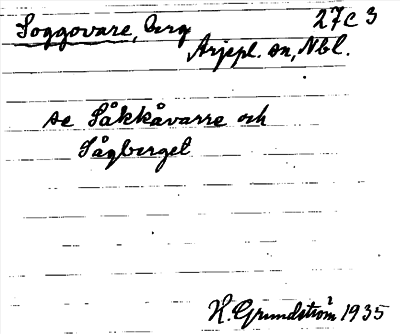 Soggovare, berg 27C3
Arjepl. sn, Nbl.
se Såkkåvarre och
Sågberget
H. Grundström 1935